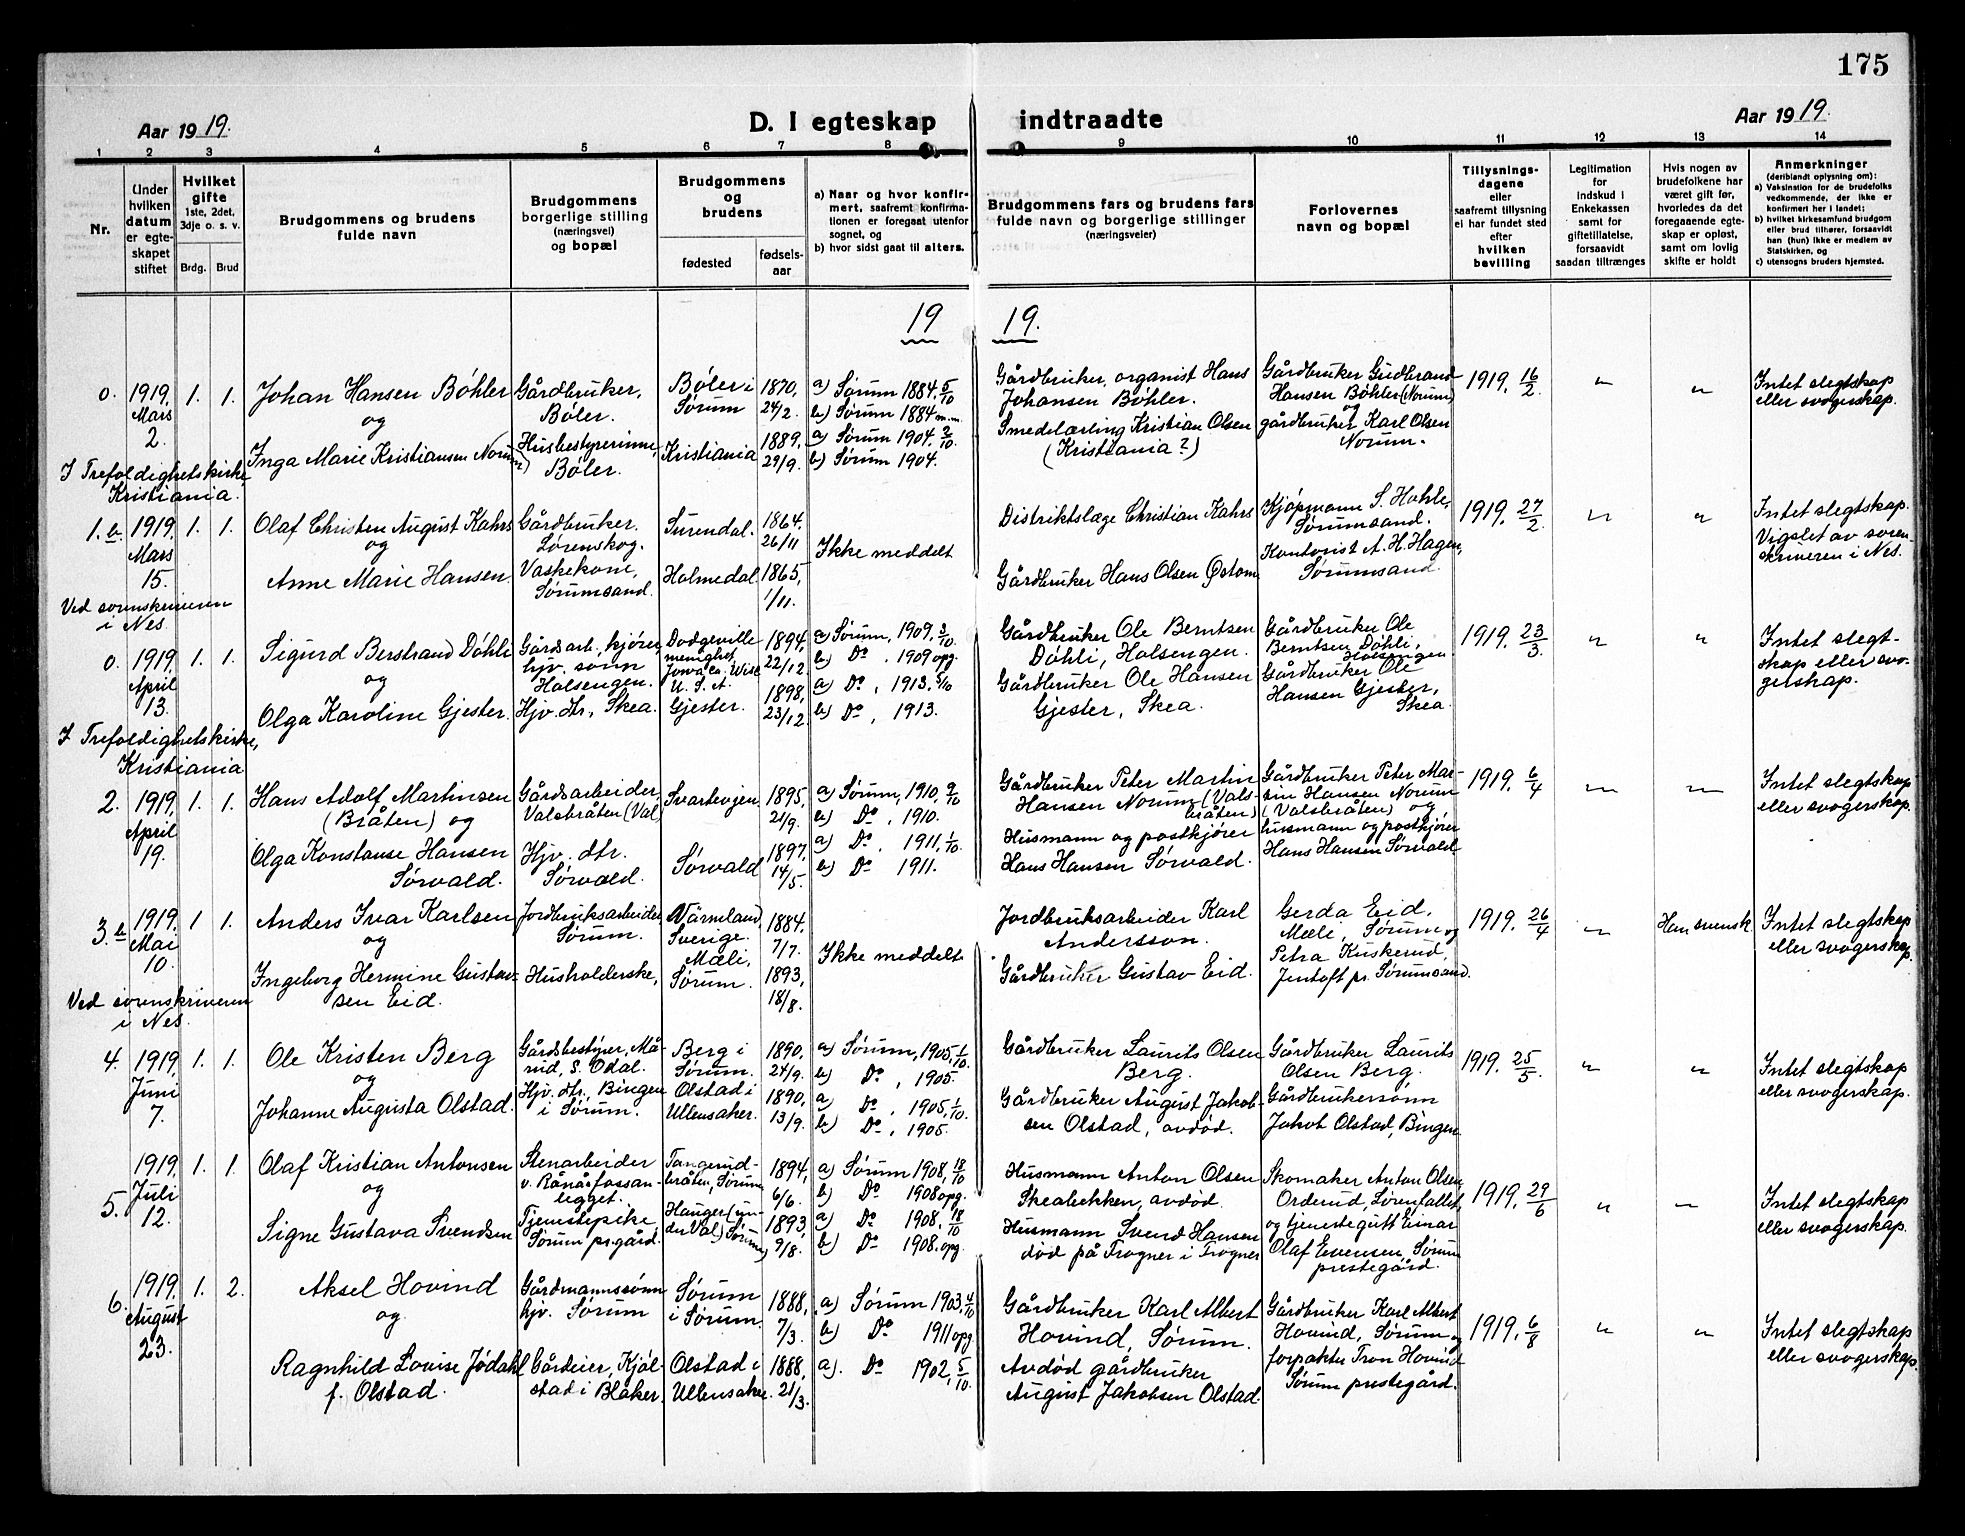 175
Aar 1919.
D. I egteskap indtraadte
Aar 1919.
1 2 3 4 5 6 7 8 9 10 11 12 13 14
Nr.
Under hvilken datum er egteskapet stiftet
Hvilket gifte 1ste, 2det, 3dje o. s. v.
Brdg. Brud
Brudgommens og brudens fulde navn
Brudgommens borgerlige stilling (næringsvei) og bopæl
Brudgommens og brudens
fødested
fødselsaar
a) Naar og hvor konfirmert, saafremt konfirmationen er foregaat utenfor sognet, og
b) hvor sidst gaat til alters.
Brudgommens fars og brudens fars fulde navn og borgerlige stillinger (næringsveier)
Forlovernes navn og bopæl
Tillysningsdagene eller saafremt tillysning ei har fundet sted efter hvilken bevilling
Legitimation for indskud i Enkekassen samt for giftetillatelse, forsaavidt saadan tiltrænges
Hvis nogen av brudefolkene har været gift før, hvorledes da det foregaaende egteskap er opløst, samt om lovlig skifte er holdt
Anmerkninger
(deriblandt oplysning om):
a) Vaksination for de brudefolks vedkommende, der ikke er konfirmert her i landet;
b) hvilket kirkesamfund brudgom eller brud tilhører, forsaavidt han (hun) ikke er medlem av Statskirken, og
c) utensogns bruders hjemsted.
19 19.
0. 1919, Mars 2. 1. 1.
Johan Hansen Bøhler
og
Inga Marie Kristiansen Norum
Gårdbruker, Bøler.
Husbestyrerinne, Bøler.
Bøler i Sørum
Kristiania
1870, 24/2.
1889, 29/9.
a) Sørum 1884, 5/10
b) Sørum 1884 m.m.
a) Sørum 1904. 2/10.
b) Sørum 1904.
Gårdbruker, organist Hans Johansen Bøhler.
Smedelærling Kristian Olsen (Kristiania?)
Gårdbruker Gudbrand Hansen Bøhler (Norum)
og
gårdbruker Karl Olsen Norum.
1919. 16/2.
" "
Intet slegtskap eller svogerskap.
I Trefoldighetskirke, Kristiania.
1.b. 1919, Mars 15. 1. 1.
Olaf Christen August Kahrs
og
Anne Marie Hansen.
Gårdbruker. Lørenskog.
Vaskekone, Sørumsand.
Surendal.
Holmedal
1864, 26/11
1865, 1/11.
Ikke meddelt
Distriktslæge Christian Kahrs
Gårdbruker Hans Olsen Østom
Kjøpmann S. Hohle, Sørumsand.
Kontorist A. H. Hagen, Sørumsand.
1919. 27/2.
" "
Intet slegtskap.
Vigslet av sorenskriveren i Nes.
Ved sorenskriveren i Nes.
0. 1919 April 13. 1. 1.
Sigurd Berstrand Døhli
og
Olga Karoline Gjester.
Gårdsarb., kjører, hjv. sønn Halsengen.
Hjv. dtr., Skea.
Dodgeville menighet, Jowa Co., Wisc. U. S. A.
Gjester.
1894, 22/12.
1898, 23/12.
a) Sørum, 1909. 3/10.
b) Do. 1909 opg.
a) Do, 1913. 5/10
b) Do, 1913.
Gårdbruker Ole Berntsen Døhli, Halsengen.
Gårdbruker Ole Hansen Gjester, Skea.
Gårdbruker Ole Berntsen Døhli, Halsengen
Gårdbruker Ole Hansen Gjester, Skea
1919. 23/3.
" "
Intet slegtskap eller svogerskap.
I Trefoldighetskirke, Kristiania
2. 1919, April 19. 1. 1.
Hans Adolf Martinsen (Bråten) og
Olga Konstanse Hansen Sørvald.
Gårdsarbeider, Valsbråten (Val)
Hjv. dtr. Sørvald.
Svartevjen
Sørvald
1895, 21/9.
1897, 14/5.
a) Sørum, 1910, 9/10
b) Do, 1910.
a) Do, 1911, 1/10.
b) Do 1911.
Gårdbruker Peter Martin Hansen Norum (Valsbråten)
Husmann og postkjører Hans Hansen Sørvald.
Gårdbruker Peter Martin Hansen Norum (Valsbråten) og
husmann og postkjører Hans Hansen Sørvald
1919. 6/4
" "
Intet slegtskap eller svogerskap.
3.b. 1919, Mai 10. 1 1.
Anders Ivar Karlsen
og
Ingeborg Hermine Gustavsen Eid.
Jordbruksarbeider Sørum.
Husholderske,
Värmland, Sverige.
Mæli, Sørum.
1884. 7/7.
1893, 18/8.
Ikke meddelt
Jordbruksarbeider Karl Andersson.
Gårdbruker Gustav Eid.
Gerda Eid, Mæli, Sørum og
Petra Kuskerud, Jentoft pr. Sørumsand.
1919. 26/4
" Han svensk
Intet slegtskap eller svogerskap.
Ved sorenskriveren i Nes.
4. 1919 Juni 7. 1. 1.
Ole Kristen Berg
og
Johanne Augusta Olstad.
Gårdsbestyrer, Mårud, S. Odal.
Hjv. dtr., Bingen i Sørum.
Berg i Sørum.
Olstad i Ullensaker.
1890, 24/9.
1890, 13/9.
a) Sørum, 1905, 1/10
b) Do, 1905.
a) Do, 1905, 1/10.
b) Do, 1905.
Gårdbruker Laurits Olsen Berg.
Gårdbruker August Jakobsen Olstad, avdød.
Gårdbruker Laurits Olsen Berg.
Gårdbrukersønn Jakob Olstad, Bingen
1919. 25/5.
" "
Intet slegtskap eller svogerskap.
5. 1919. Juli 12. 1. 1.
Olaf Kristian Antonsen
og
Signe Gustava Svendsen
Stenarbeider v. Rånåsfossanlegget.
Tjenestepike, Sørum pr.gård.
Tangerudbråten, Sørum
Hauger (under Val) Sørum
1894, 6/6.
1893, 9/8.
a) Sørum 1908, 18/10
b) Do 1908 opg.
a) Do 1908, 18/10
b) Do 1908. opg.
Husmann Anton Olsen Skeabekken, avdød.
Husmann Svend Hansen død på Frogner i Frogner
Skomaker Anton Olsen Orderud, Sørenfallet,
og tjenestegutt Einar Olaf Evensen, Sørum prestegård.
1919. 29/6
" "
Intet slegtskap eller svogerskap.
6. 1919. August 23. 1. 2.
Aksel Hovind
og
Ragnhild Lovise Jødahl f. Olstad.
Gårdmannssønn hjv. Sørum
Gårdeier, Kjølstad i Blaker.
Sørum i Sørum.
Olstad i Ullensaker.
1888, 7/3.
1888, 21/3.
a) Sørum 1903, 4/10
b) Do 1911 opg
a). Do 1902, 5/10.
Gårdbruker Karl Albert Hovind, Sørum.
Avdød gårdbruker August Jakobsen Olstad.
Gårdbruker Karl Albert Hovind, Sørum og
forpakter Tron Hovind Sørum prestegård.
1919. 6/8
" "
Intet slegtskap eller svogerskap.